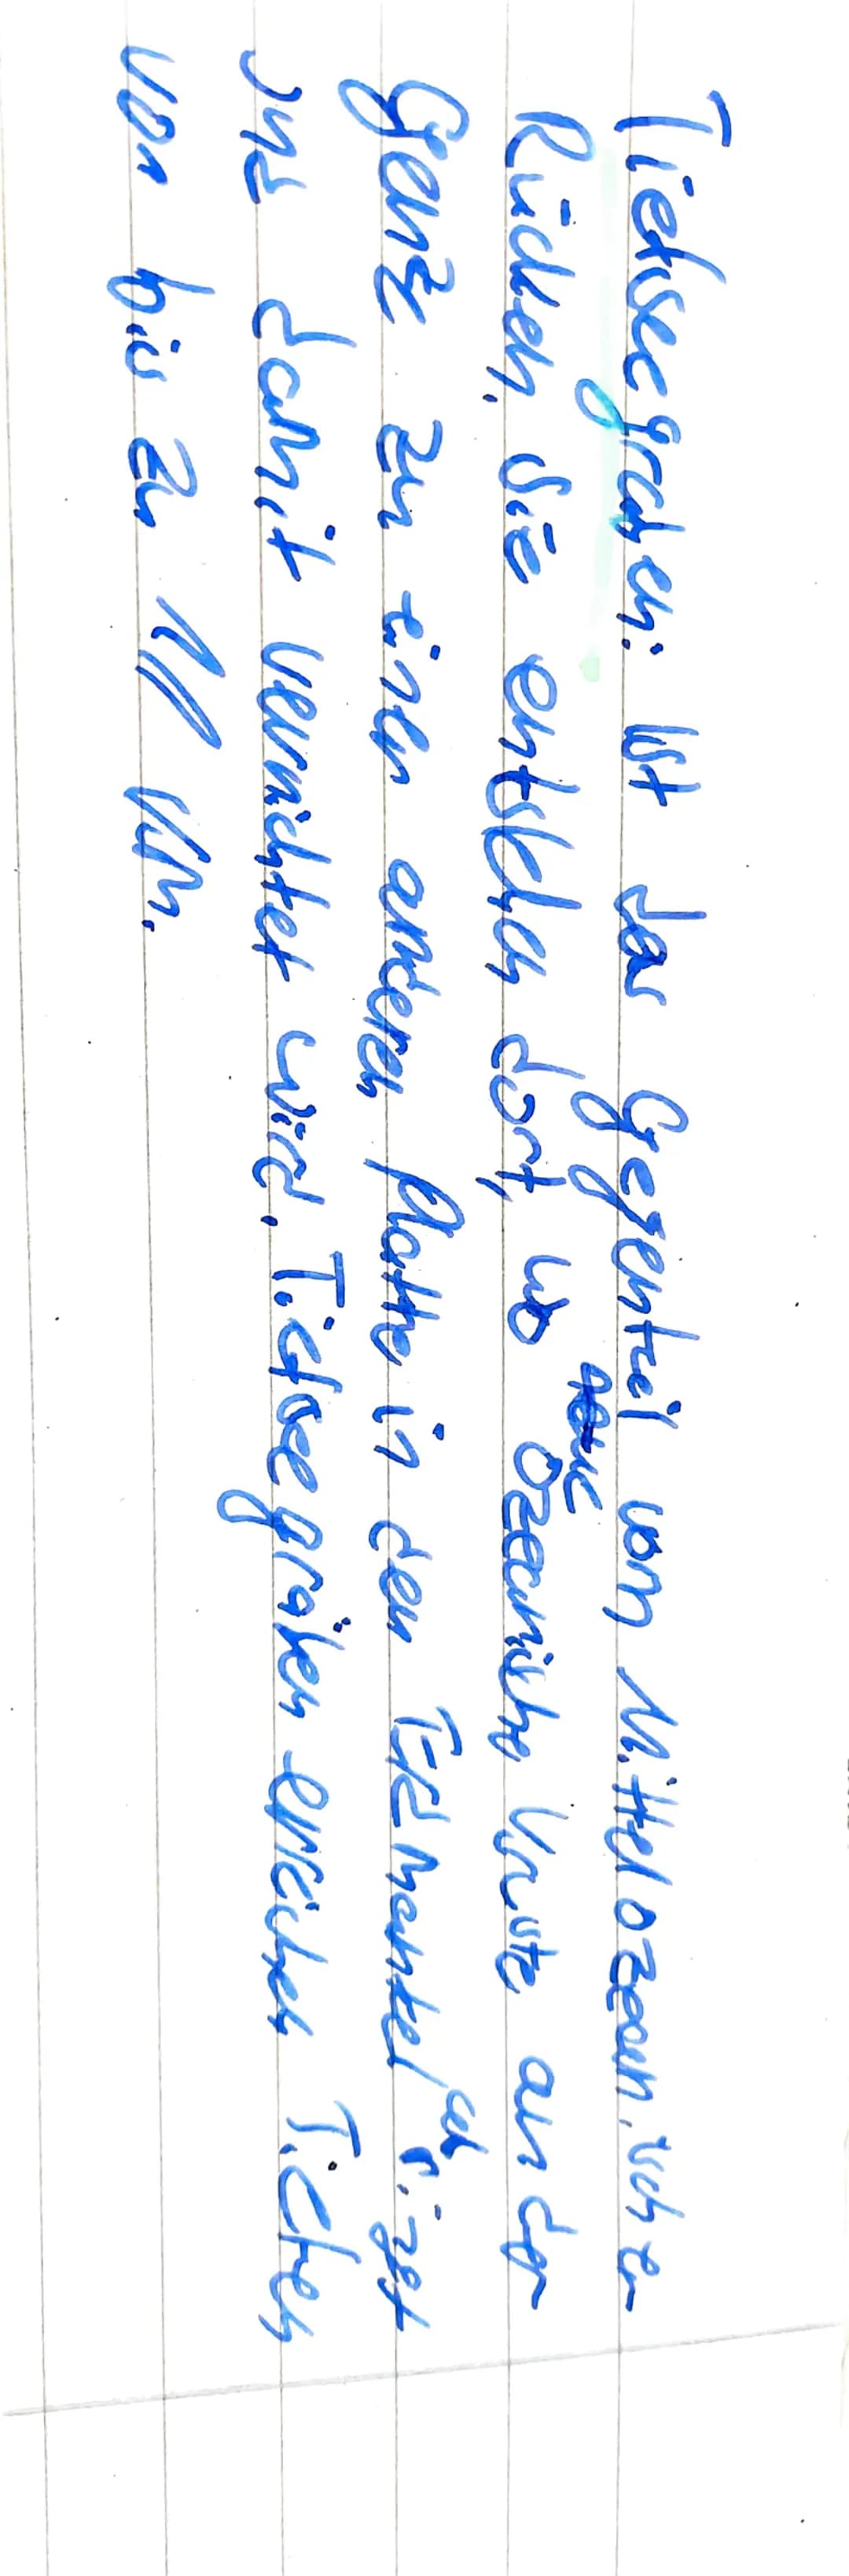 Tiefseegraben: Ist das Gegenteil vom Mittelozeanischen
Rücken. Sie entstehen dort, wo neue ozeanische Kruste an der
Grenze zu einer anderen Platte in den Erdmantel absinkt
und damit vernichtet wird. Tiefseegräben erreichen Tiefen
von bis zu 11 km.